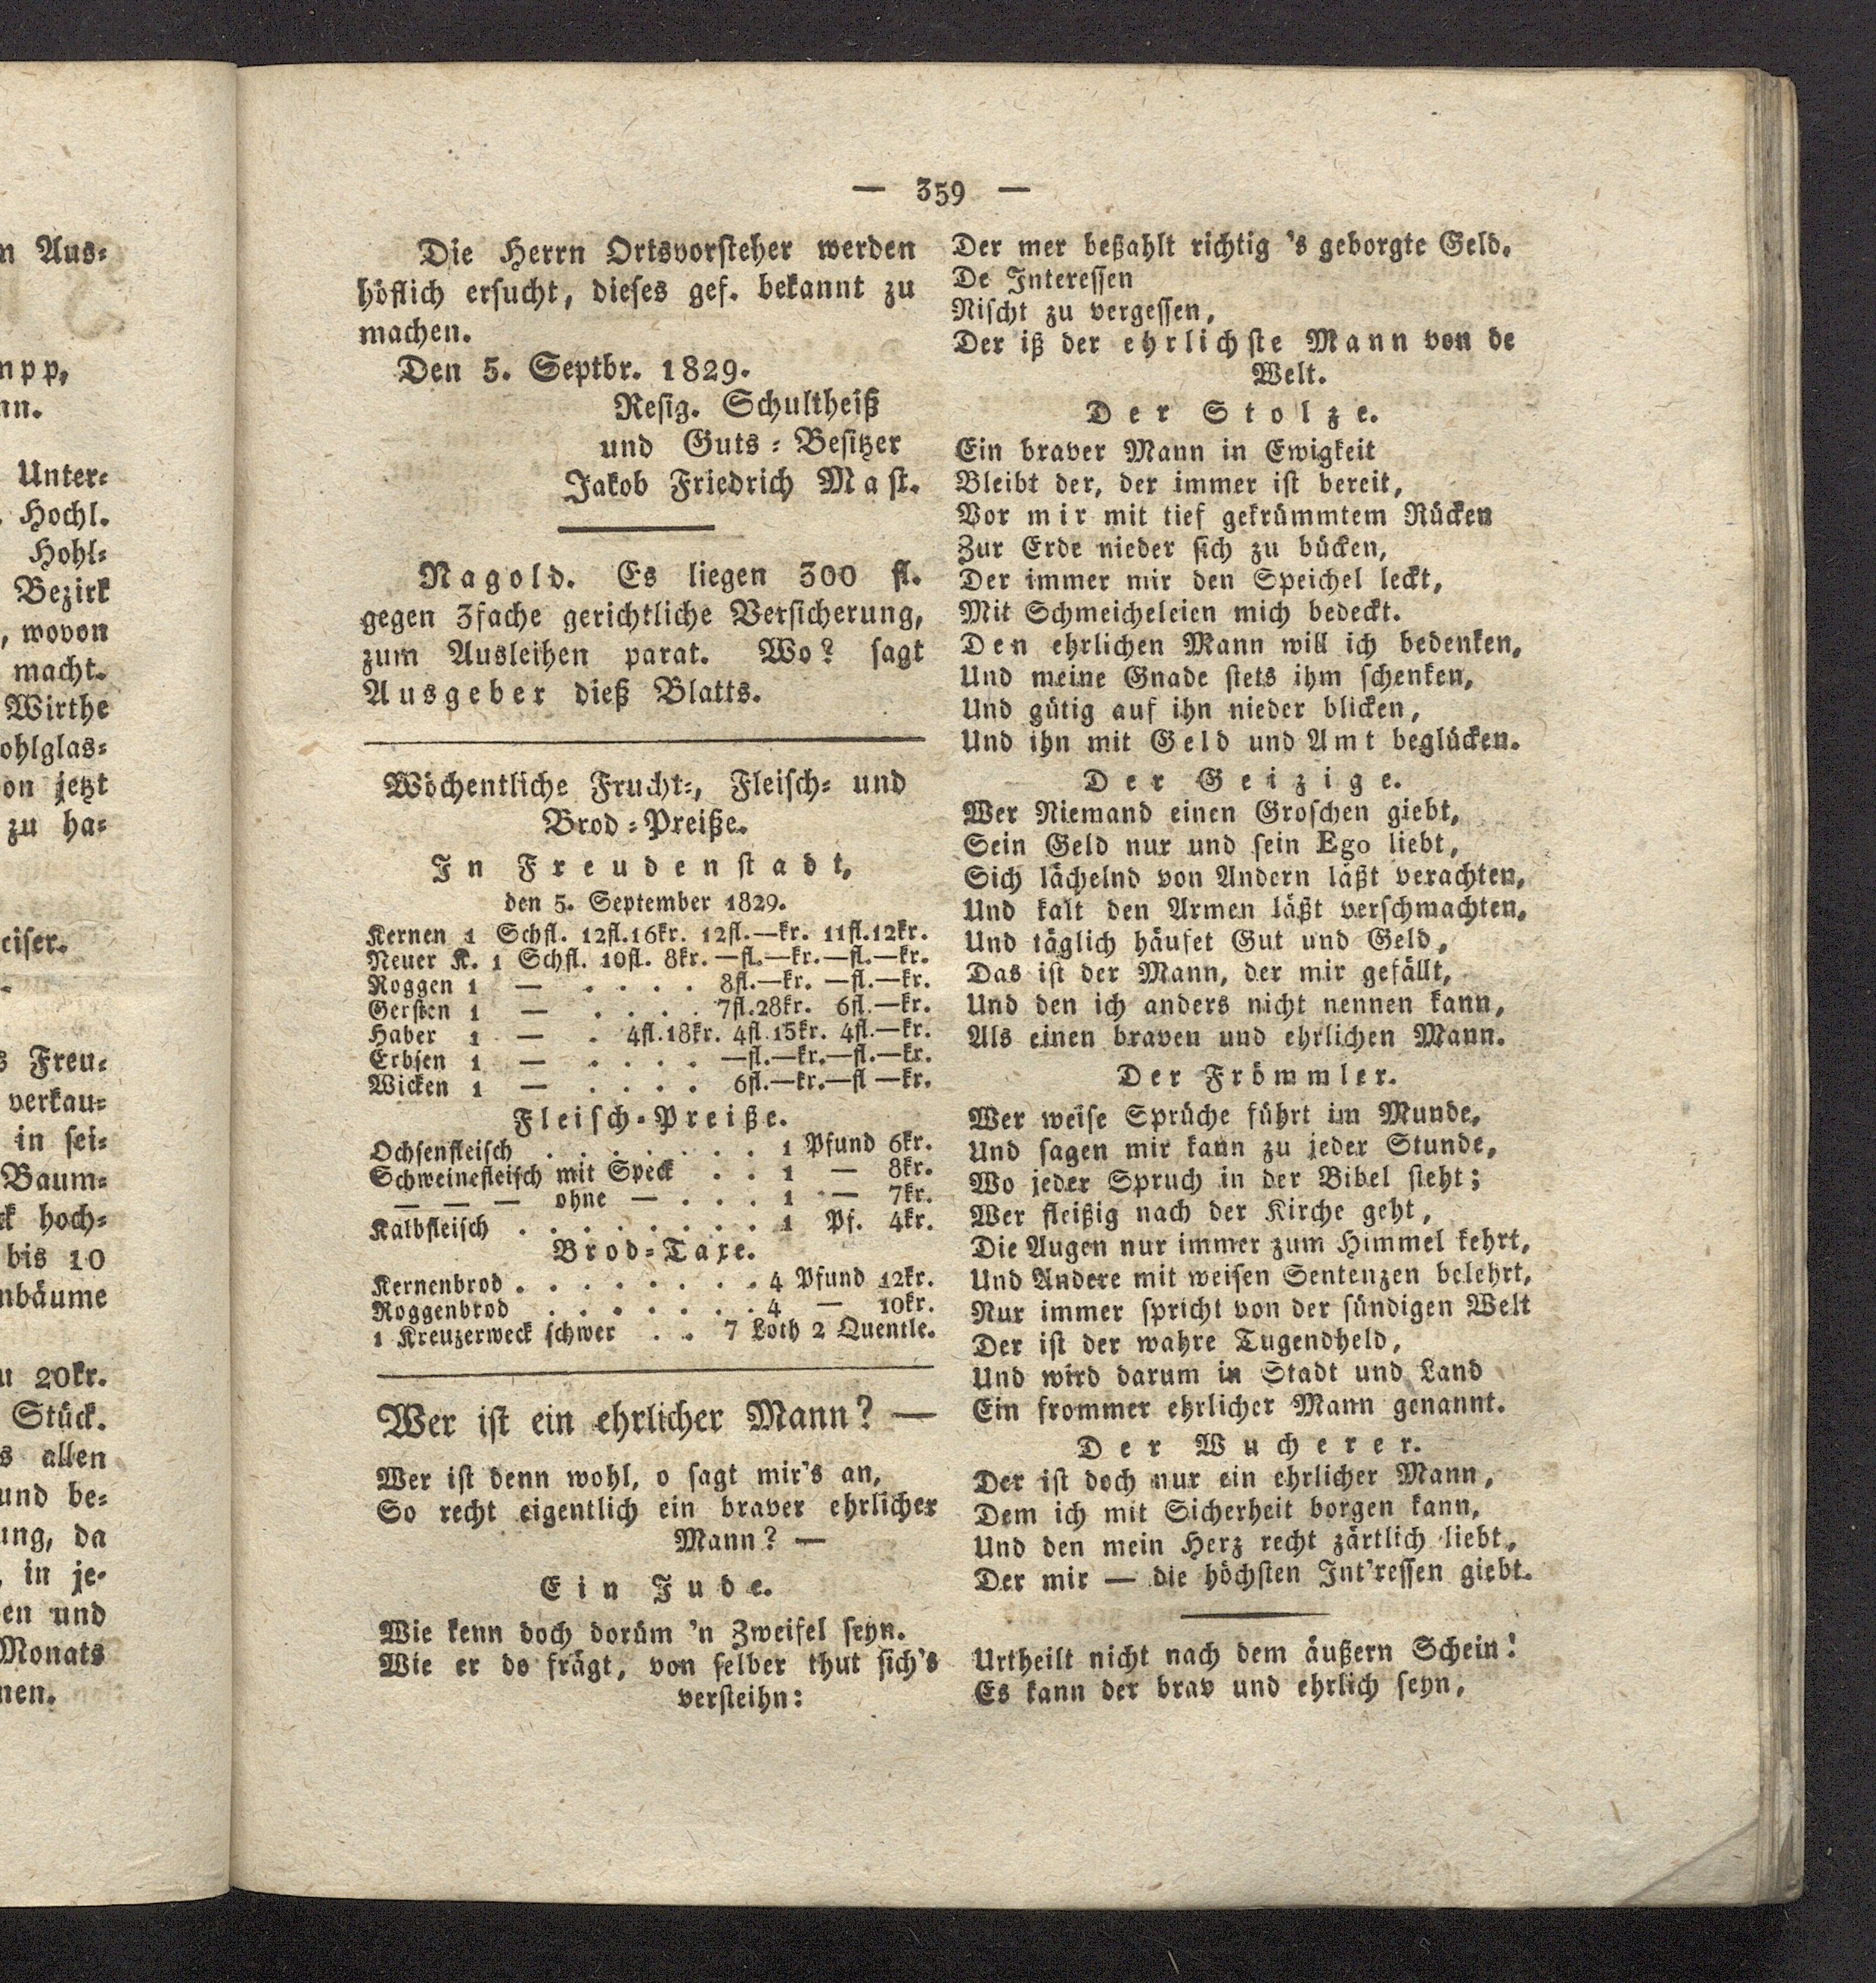 n Aus=
npp,
nn.
Unter=
. Hochl.
Hohl=
Bezirk
, wovon
macht.
Wirthe
ohlglas=
on jetzt
zu ha=
eiser.
s Freu=
verkau=
in sei=
Baum=
k hoch=
bis 10
nbäume
u 20kr.
Stück.
s allen
und be=
ung, da
, in je=
en und
Monats
nen.
— 359 —
Die Herrn Ortsvorsteher werden
höflich ersucht, dieses gef. bekannt zu
machen.
Den 5. Septbr. 1829.
Resig. Schultheiß
und Guts=Besitzer
Jakob Friedrich Mast.
Nagold. Es liegen 300 fl.
gegen 3fache gerichtliche Versicherung,
zum Ausleihen parat. Wo? sagt
Ausgeber dieß Blatts.
Wöchentliche Frucht=, Fleisch= und
Brod=Preiße.
In Freudenstadt,
den 5. September 1829.
Kernen 1 Schfl. 12fl.16kr. 12fl.—kr. 11fl.12kr.
Neuer K. 1 Schfl. 10fl. 8kr.—fl.—kr.—fl.—kr.
Roggen 1 — . . . . 8fl.—kr. —fl.—kr.
Gersten 1 — . . . . 7fl.28kr. 6fl.—kr.
Haber 1 — . 4fl.18kr. 4fl.15kr. 4fl.—kr.
Erbsen 1 — . . . . —fl.—kr.—fl.—kr.
Wicken 1 — . . . . 6fl.—kr.—fl —kr.
Fleisch=Preiße.
Ochsenfleisch . . . . . . . 1 Pfund 6kr.
Schweinefleisch mit Speck . . 1 — 8kr.
— — — ohne — . . . 1 — 7kr.
Kalbfleisch . . . . . . . . 1 Pf. 4kr.
Brod=Taxe.
Kernenbrod . . . . . . . . 4 Pfund 12kr.
Roggenbrod . . . . . . . 4 — 10kr.
1 Kreuzerweck schwer . . 7 Loth 2 Quentle.
Wer ist ein ehrlicher Mann? —
Wer ist denn wohl, o sagt mir's an,
So recht eigentlich ein braver ehrlicher
Mann? —
Ein Jude.
Wie kenn doch dorüm 'n Zweifel seyn.
Wie er do frägt, von selber thut sich's
versteihn:
Der mer beßahlt richtig 's geborgte Geld.
De Interessen
Nischt zu vergessen,
Der iß der ehrlichste Mann von de
Welt.
Der Stolze.
Ein braver Mann in Ewigkeit
Bleibt der, der immer ist bereit,
Vor mir mit tief gekrümmtem Rücken
Zur Erde nieder sich zu bücken,
Der immer mir den Speichel leckt,
Mit Schmeicheleien mich bedeckt.
Den ehrlichen Mann will ich bedenken,
Und meine Gnade stets ihm schenken,
Und gütig auf ihn nieder blicken,
Und ihn mit Geld und Amt beglücken.
Der Geizige.
Wer Niemand einen Groschen giebt,
Sein Geld nur und sein Ego liebt,
Sich lächelnd von Andern läßt verachten,
Und kalt den Armen läßt verschmachten,
Und täglich häufet Gut und Geld,
Das ist der Mann, der mir gefällt,
Und den ich anders nicht nennen kann,
Als einen braven und ehrlichen Mann.
Der Frömmler.
Wer weise Sprüche führt im Munde,
Und sagen mir kann zu jeder Stunde,
Wo jeder Spruch in der Bibel steht;
Wer fleißig nach der Kirche geht,
Die Augen nur immer zum Himmel kehrt,
Und Andere mit weisen Sentenzen belehrt,
Nur immer spricht von der sündigen Welt
Der ist der wahre Tugendheld,
Und wird darum in Stadt und Land
Ein frommer ehrlicher Mann genannt.
Der Wucherer.
Der ist doch nur ein ehrlicher Mann,
Dem ich mit Sicherheit borgen kann,
Und den mein Herz recht zärtlich liebt,
Der mir — die höchsten Int'ressen giebt.
Urtheilt nicht nach dem äußern Schein!
Es kann der brav und ehrlich seyn,